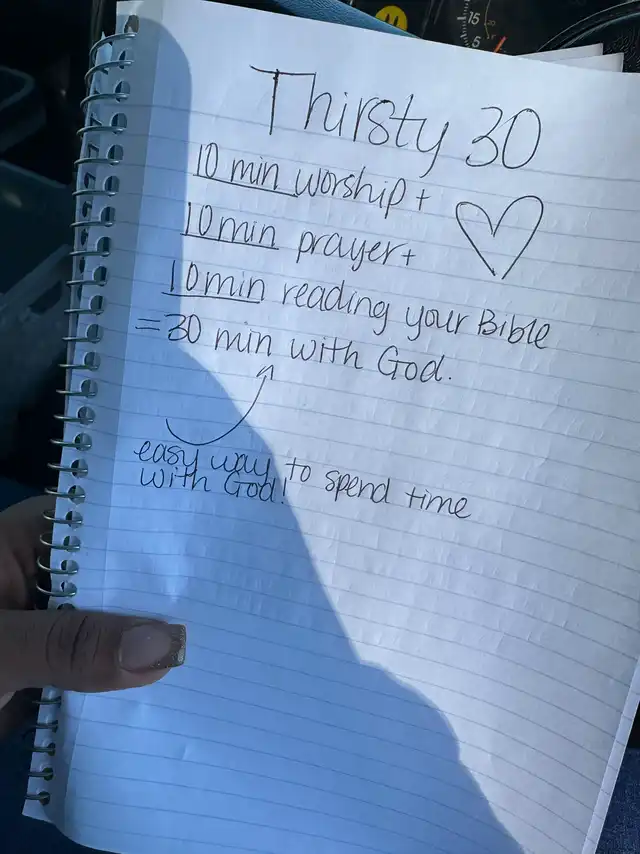 Thirsty 30
10 min worship +
10 min prayer +
10 min reading your Bible
= 30 min with God.
easy way to spend time
with God!
15
5